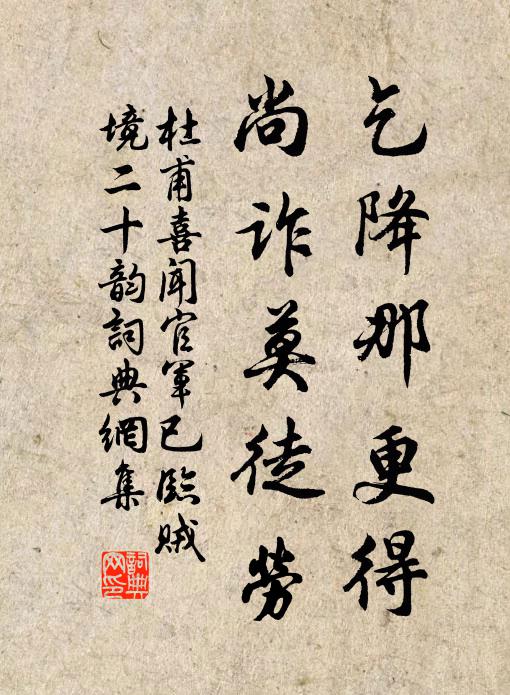 乞降那更得
尚诈莫徒劳
杜甫喜闻官军已临贼
境二十韵词典网集
词典网印